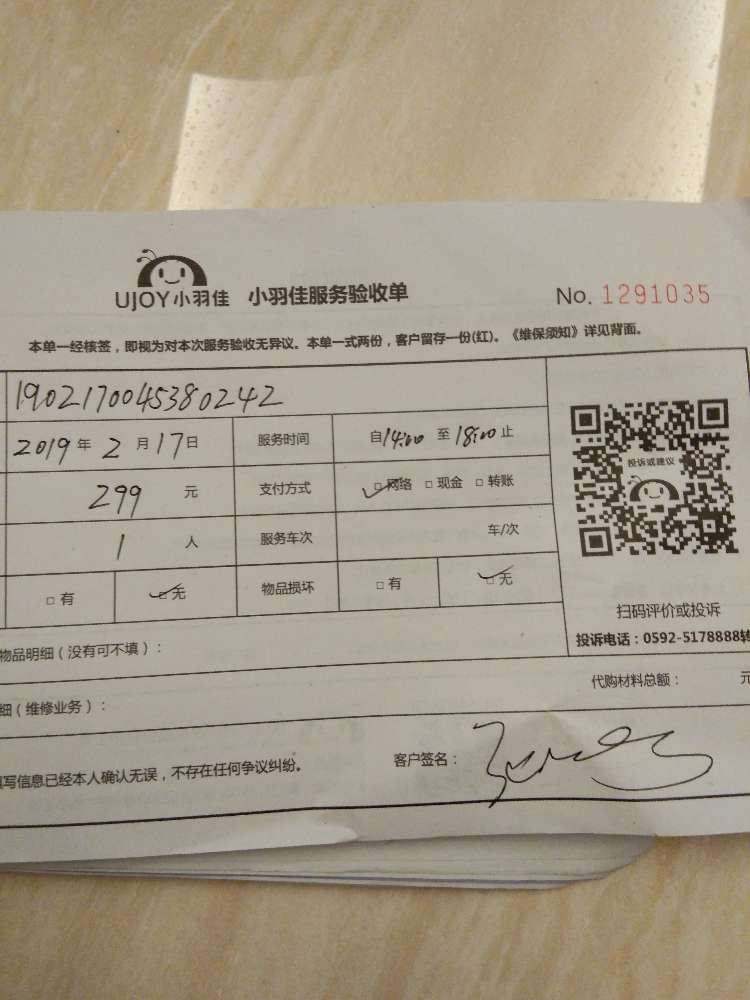 UJOY小羽佳 小羽佳服务验收单 No. 1291035
本单一经核签，即视为对本次服务验收无异议。本单一式两份，客户留存一份(红)。《维保须知》详见背面。
1902170045380242
2019 年 2 月 17 日 服务时间 自 14:00 至 18:00 止
299 元 支付方式 ☑ 网络 □ 现金 □ 转账
1 人 服务车次 车/次
□ 有 ☑ 无 物品损坏 □ 有 ☑ 无
投诉或建议
扫码评价或投诉
投诉电话：0592-5178888转
物品明细（没有可不填）：
代购材料总额： 元
细（维修业务）：
填写信息已经本人确认无误，不存在任何争议纠纷。 客户签名：